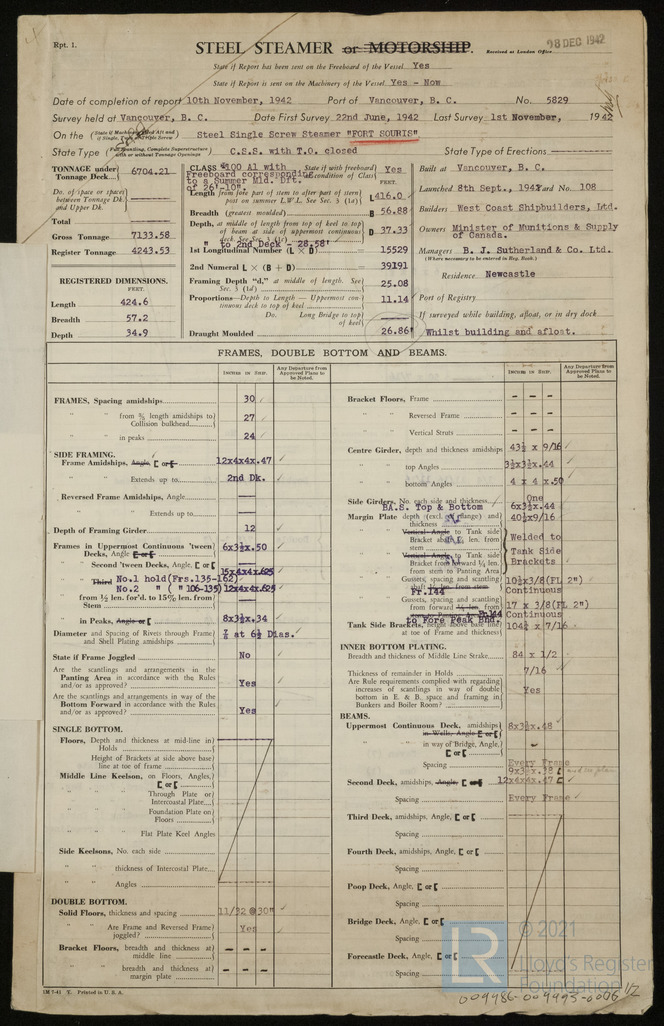 Rpt. 1.
STEEL STEAMER or MOTORSHIP.
Received at London Office
28 DEC 1942
State if Report has been sent on the Freeboard of the Vessel Yes
State if Report is sent on the Machinery of the Vessel Yes - Now
Date of completion of report 10th November, 1942 Port of Vancouver, B. C. No. 5829
Survey held at Vancouver, B. C. Date First Survey 22nd June, 1942 Last Survey 1st November, 1942
On the (State if Machinery fitted Aft and if Single, Twin or Triple Screw) Steel Single Screw Steamer "FORT SOURIS"
State Type (Full Scantling, Complete Superstructure with or without Tonnage Openings) C.S.S. with T.O. closed State Type of Erections
TONNAGE under Tonnage Deck 6704.21
Do. of space or spaces between Tonnage Dk. and Upper Dk.
Total
Gross Tonnage 7133.58
Register Tonnage 4243.53
REGISTERED DIMENSIONS.
FEET.
Length 424.6
Breadth 57.2
Depth 34.9
CLASS 100 A1 with State if with freeboard as condition of Class Yes
Freeboard corresponding
to a Summer Mld. Dft.
of 26'-10".
FEET.
Length from fore part of stem to after part of stern post on summer L.W.L. See Sec. 3 (1a) L 416.0
Breadth (greatest moulded) B 56.88
Depth, at middle of length from top of keel to top of beam at side of uppermost continuous deck. D 37.33
" to 2nd Deck - 28.58'
1st Longitudinal Number (L × D) 15529
2nd Numeral L × (B + D) 39191
Framing Depth "d," at middle of length. See Sec. 3 (1d) 25.08
Proportions—Depth to Length—Uppermost continuous deck to top of keel 11.14
Do. Long Bridge to top of keel
Draught Moulded 26.86'
Built at Vancouver, B. C.
Launched 8th Sept., 1942 Yard No. 108
Builders West Coast Shipbuilders, Ltd.
Owners Minister of Munitions & Supply of Canada.
Managers B. J. Sutherland & Co. Ltd.
(Where necessary to be entered in Reg. Book.)
Residence Newcastle
Port of Registry
If surveyed while building, afloat, or in dry dock
Whilst building and afloat.
FRAMES, DOUBLE BOTTOM AND BEAMS.
INCHES IN SHIP.
Any Departure from Approved Plans to be Noted.
FRAMES, Spacing amidships 30
" " from 3/5 length amidships to Collision bulkhead 27
" " in peaks 24
SIDE FRAMING.
Frame Amidships, Angle, [ or [ 12x4x4x.47
" " Extends up to 2nd Dk.
Reversed Frame Amidships, Angle
" " Extends up to
Depth of Framing Girder 12
Frames in Uppermost Continuous 'tween Decks, Angle [ or [ 6x3½x.50
" Second 'tween Decks, Angle, [ or [
Third No.1 hold(Frs.135-162) 15x4x4x.625
No.2 " ( " 106-135) 12x4x4x.625
from ½ len. for'd. to 15% len. from Stem
" in Peaks, Angle or [ 8x3½x.34
Diameter and Spacing of Rivets through Frame and Shell Plating amidships ⅞ at 6½ Dias.
State if Frame Joggled No
Are the scantlings and arrangements in the Panting Area in accordance with the Rules and/or as approved? Yes
Are the scantlings and arrangements in way of the Bottom Forward in accordance with the Rules and/or as approved? Yes
SINGLE BOTTOM.
Floors, Depth and thickness at mid-line in Holds
Height of Brackets at side above base line at toe of frame
Middle Line Keelson, on Floors, Angles, [ or [
" " Through Plate or Intercostal Plate
" " Foundation Plate on Floors
" " Flat Plate Keel Angles
Side Keelsons, No. each side
" " thickness of Intercostal Plate
" " Angles
DOUBLE BOTTOM.
Solid Floors, thickness and spacing 11/32 @ 30"
" " Are Frame and Reversed Frame joggled? Yes
Bracket Floors, breadth and thickness at middle line - - -
" " breadth and thickness at margin plate - - -
1M 7-41 T. Printed in U. S. A.
INCHES IN SHIP.
Any Departure from Approved Plans to be Noted.
Bracket Floors, Frame - - -
" " Reversed Frame - - -
" " Vertical Struts - - -
Centre Girder, depth and thickness amidships 43½ x 9/16
" " top Angles 3½x3½x.44
" " bottom Angles 4 x 4 x.50
Side Girders, No. each side and thickness One
BA.S. Top & Bottom 6x3½x.44
Margin Plate depth (excl. of flange) and thickness 40½x9/16
" Vertical Angle to Tank side Bracket abaft ¼ len. from stem Welded to
" Vertical Angle to Tank side Bracket from forward ¼ len. from stem to Panting Area Tank Side Brackets
" Gussets, spacing and scantling abaft ¼ len. from stem 10½x3/8(FL 2")
Fr.144 Continuous
" Gussets, spacing and scantling from forward ¼ len. 17 x 3/8(FL 2")
Fr.144 to Fore Peak Bhd. Continuous
Tank Side Brackets, height above base line at toe of Frame and thickness 104½ x 7/16
INNER BOTTOM PLATING.
Breadth and thickness of Middle Line Strake 84 x 1/2
Thickness of remainder in Holds 7/16
Are Rule requirements complied with regarding increases of scantlings in way of double bottom in E. & B. space and framing in Bunkers and Boiler Room? Yes
BEAMS.
Uppermost Continuous Deck, amidships 8x3½x.48
in Wells, Angle [ or [
" " in way of Bridge, Angle, [ or [ -
Spacing Every Frame
9x3½x.38 [
Second Deck, amidships, Angle, [ or [ 12x4x4x.47 [
Spacing Every Frame
Third Deck, amidships, Angle, [ or [
Spacing
Fourth Deck, amidships, Angle, [ or [
Spacing
Poop Deck, Angle, [ or [
Spacing
Bridge Deck, Angle, [ or [
Spacing
Forecastle Deck, Angle, [ or [
Spacing
LR
© 2021
Lloyd's Register
Foundation
009986-009995-0006 1/2